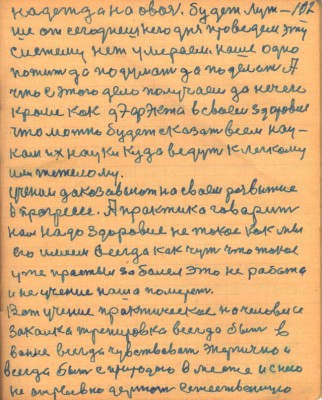 надежда на свои. Будет луч- 102
ше от сегоднешнего дня проведем эту
систему нет умераем наше одно
пожит да подумат да поделат. А
что с этого дело получаем да нечего
кроме как дефекта в своем здоровие
что можно будет сказат всем нау-
кам их науки куда ведут к легкому
или тяжелому.
ученаи доказавают на своем розвитие
в прогрессе. А практика говорит
нам надо здоровие не такое как мы
его имеем всегда как чут что такое
уже простыл заболел это не работа
и не учение наша помереть.
Вот учение практическое на человеке
закалка тренировка всегда быт в
ванне всегда чувствоват энергично и
всегда быт с природою в месте и с нею
не отрвовно держат естественную